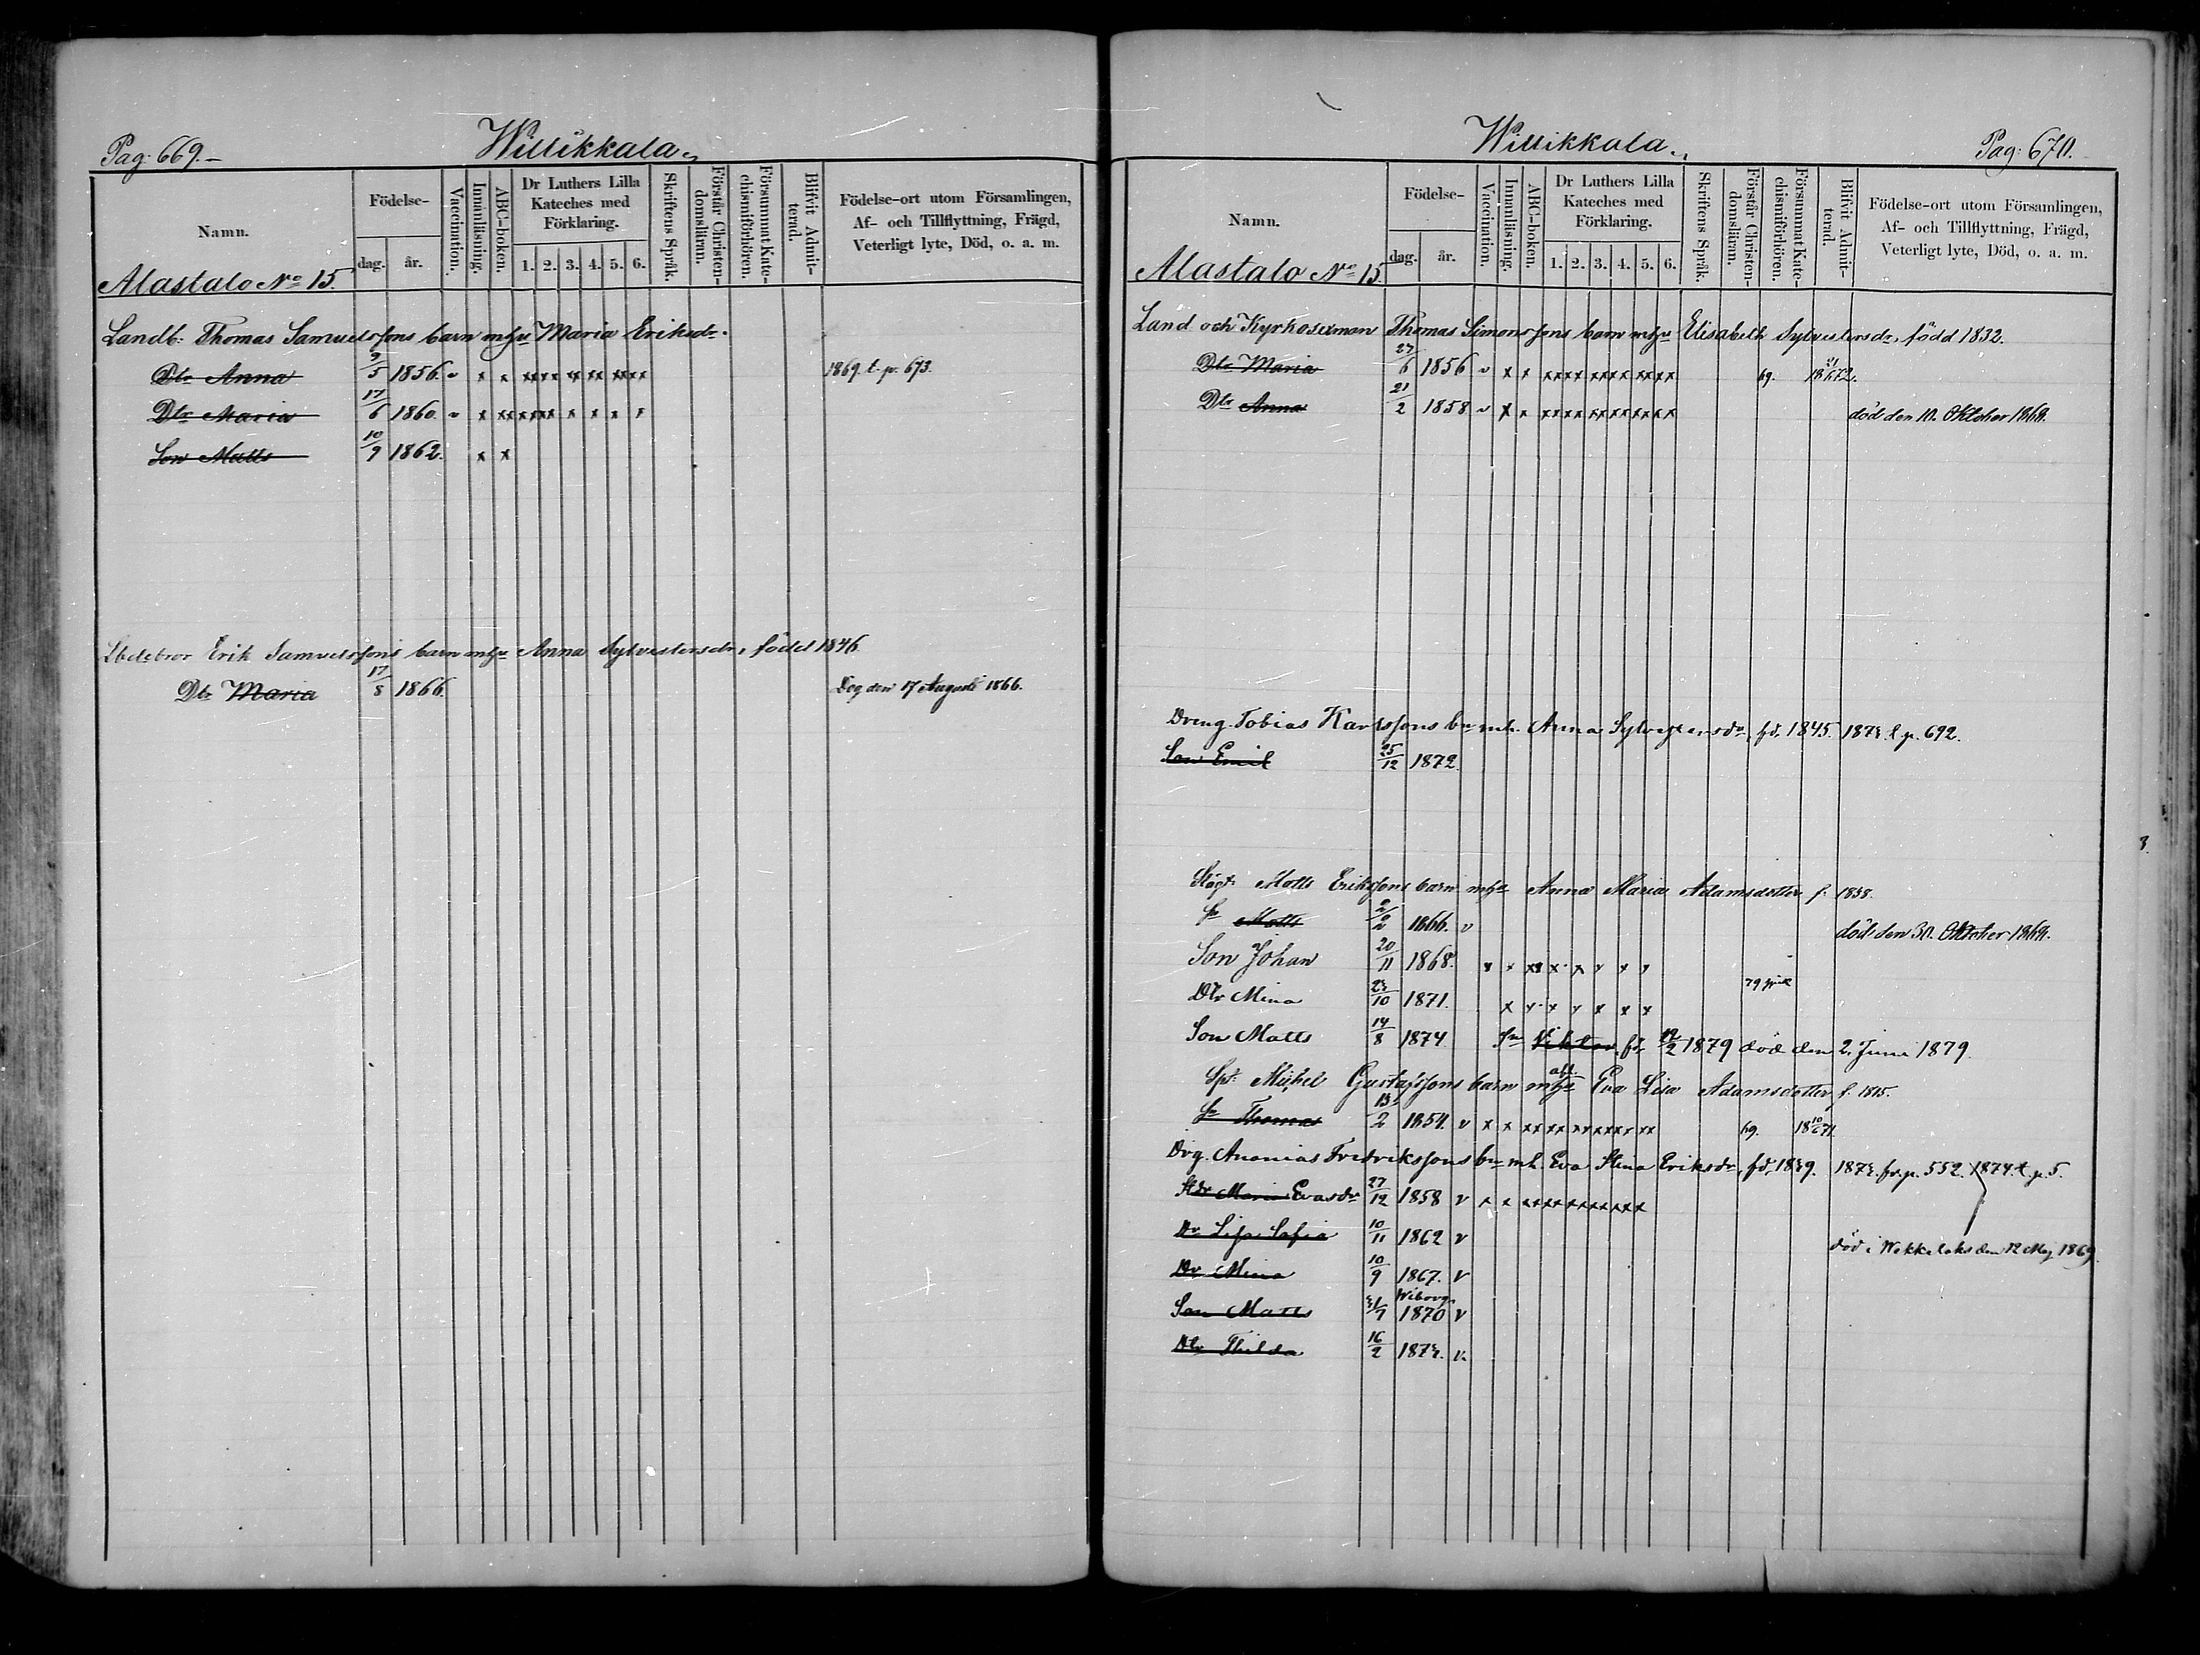 Pag: 669.
Willikkala.
Namn.
Födelse-
dag.
år.
Vaccination.
Innanläsning.
ABC-boken.
Dr Luthers Lilla
Kateches med
Förklaring.
1. 2. 3. 4. 5. 6.
Skriftens Språk.
Förstår Christen-
domsläran.
Försummat Kate-
chismiförhören.
Blifvit Admit-
terad.
Födelse-ort utom Församlingen,
Af- och Tillflyttning, Frägd,
Veterligt lyte, Död, o. a. m.
Alastalo No 15.
Landb: Thomas Samuelssons barn mhu Maria Eriksdr.
Dtr Anna 9/5 1856. v x x xx xx x xx xx xx 1869. t. p. 673.
Dtr Maria 17/6 1860. v x xx xx xx x x x x
Son Matts 10/9 1862. x x
Erik Samuelssons barn mhu Anna Sylvestersdr, född 1846
Dtr Maria 17/8 1866. Dog den 17 Augusti 1866.
Willikkala.
Pag: 670.
Namn.
Födelse-
dag.
år.
Vaccination.
Innanläsning.
ABC-boken.
Dr Luthers Lilla
Kateches med
Förklaring.
1. 2. 3. 4. 5. 6.
Skriftens Språk.
Förstår Christen-
domsläran.
Försummat Kate-
chismiförhören.
Blifvit Admit-
terad.
Födelse-ort utom Församlingen,
Af- och Tillflyttning, Frägd,
Veterligt lyte, Död, o. a. m.
Alastalo No 15.
Land och Kyrkosexman Thomas Simonssons barn mhu Elisabeth Sylvestersdr, född 1832.
Dtr Maria 27/6 1856 v x x xx xx xx xx xx xx 69.
Dtr Anna 21/2 1858 v x x xx xx xx xx xx xx död den 10. Oktober 1868.
Dreng Tobias Karlssons bn mh. Anna Sylvestersdr, fd. 1845. 1873. t. p. 692.
Son Emil 25/12 1872.
Matts Erikssons barn mhu Anna Maria Adamsdotter f. 1838.
Sn Matts 2/2 1866. v död den 30. Oktober 1868.
Son Johan 20/11 1868. x x xx x x x x x
Dtr Mina 23/10 1871. x x x x x x x
Son Matts 14/8 1874 Sn Viktor, fd. 12/2 1879 död den 2. Juni 1879.
Michel Gustafssons barn mhu afl. Eva Lisa Adamsdotter, f. 1815.
Sn Thomas 13/2 1854. v x x xx xx xx xx xx xx 69. 18 10/6 71.
Drg. Ananias Fredrikssons bn mh. Eva Stina Eriksdr, fd. 1839. 1873. fr. p. 552. 1874. t. p. 5.
Maria Evasdr 27/12 1858 v x x xx xx xx xx xx xx
Dr Lisa Sofia 10/11 1862 v
död i Wekkelaks den 12 Maj 1869.
Dr Mina 10/9 1867. v
Wiborg
Son Matts 31/7 1870 v
Dtr Hilda 16/2 1873. v.